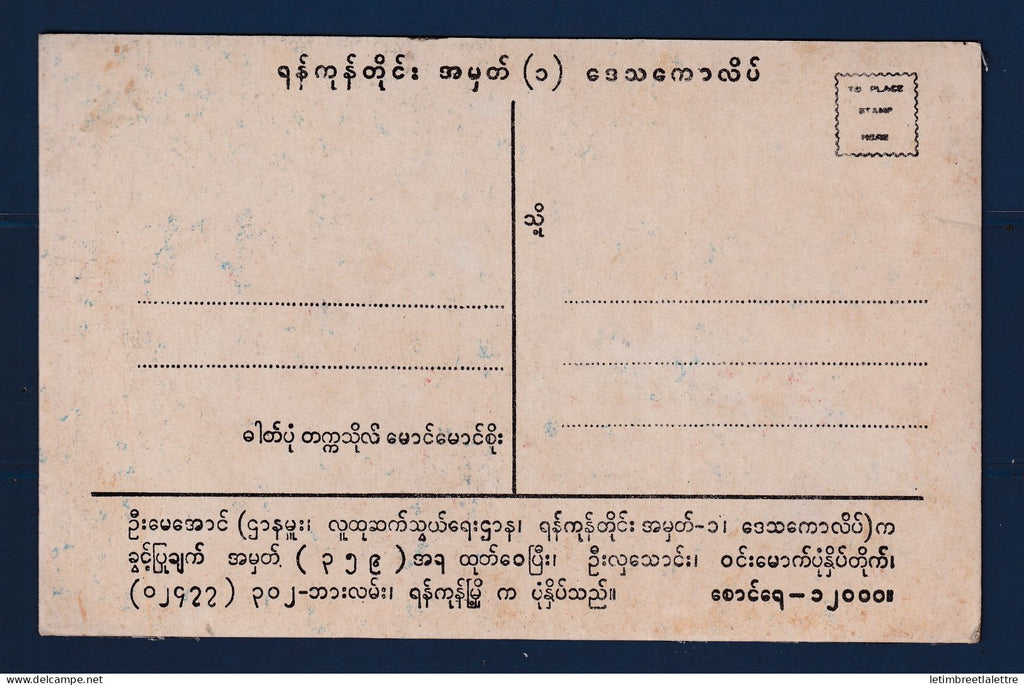 ရန်ကုန်တိုင်း အမှတ် (၁) ဒေသကောလိပ်
TO PLACE
STAMP
HERE
သို့
ဓါတ်ပုံ တက္ကသိုလ် မောင်မောင်စိုး
ဦးမေအောင် (ဌာနမှူး၊ လူထုဆက်သွယ်ရေးဌာန၊ ရန်ကုန်တိုင်း အမှတ်-၁၊ ဒေသကောလိပ်)က
ခွင့်ပြုချက် အမှတ် ( ၃၅၉ ) အရ ထုတ်ဝေပြီး၊ ဦးလှသောင်း၊ ဝင်းမောက်ပုံနှိပ်တိုက်၊
(၀၂၄၇၇) ၃၀၂-ဘားလမ်း၊ ရန်ကုန်မြို့ က ပုံနှိပ်သည်။ စောင်ရေ – ၁၂၀၀၀။
letimbreetlalettre